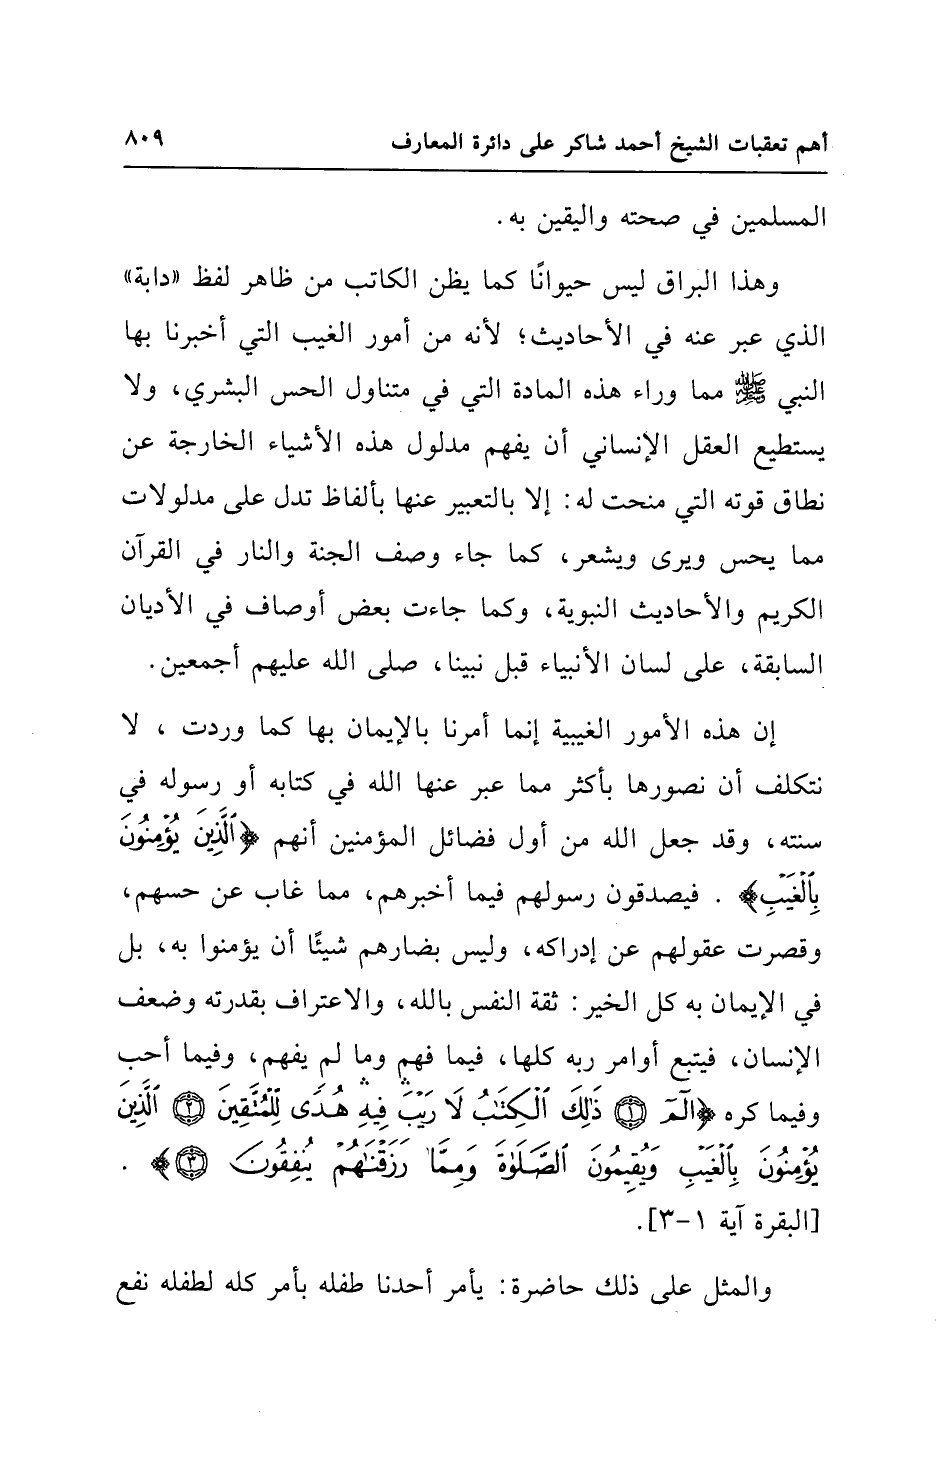 أهم تعقبات الشيخ أحمد شاكر على دائرة المعارف ٨٠٩
المسلمين في صحته واليقين به.
وهذا البراق ليس حيوانًا كما يظن الكاتب من ظاهر لفظ «دابة»
الذي عبر عنه في الأحاديث؛ لأنه من أمور الغيب التي أخبرنا بها
النبي ﷺ مما وراء هذه المادة التي في متناول الحس البشري، ولا
يستطيع العقل الإنساني أن يفهم مدلول هذه الأشياء الخارجة عن
نطاق قوته التي منحت له: إلا بالتعبير عنها بألفاظ تدل على مدلولات
مما يحس ويرى ويشعر، كما جاء وصف الجنة والنار في القرآن
الكريم والأحاديث النبوية، وكما جاءت بعض أوصاف في الأديان
السابقة، على لسان الأنبياء قبل نبينا، صلى الله عليهم أجمعين.
إن هذه الأمور الغيبية إنما أمرنا بالإيمان بها كما وردت ، لا
نتكلف أن نصورها بأكثر مما عبر عنها الله في كتابه أو رسوله في
سنته، وقد جعل الله من أول فضائل المؤمنين أنهم ﴿ٱلَّذِينَ يُؤۡمِنُونَ
بِٱلۡغَيۡبِ﴾ . فيصدقون رسولهم فيما أخبرهم، مما غاب عن حسهم،
وقصرت عقولهم عن إدراكه، وليس بضارهم شيئًا أن يؤمنوا به، بل
في الإيمان به كل الخير: ثقة النفس بالله، والاعتراف بقدرته وضعف
الإنسان، فيتبع أوامر ربه كلها، فيما فهم وما لم يفهم، وفيما أحب
وفيما كره ﴿الٓمٓ ١ ذَٰلِكَ ٱلۡكِتَٰبُ لَا رَيۡبَۛ فِيهِۛ هُدٗى لِّلۡمُتَّقِينَ ٢ ٱلَّذِينَ
يُؤۡمِنُونَ بِٱلۡغَيۡبِ وَيُقِيمُونَ ٱلصَّلَوٰةَ وَمِمَّا رَزَقۡنَٰهُمۡ يُنفِقُونَ ٣﴾ .
[البقرة آية ١-٣].
والمثل على ذلك حاضرة: يأمر أحدنا طفله بأمر كله لطفله نفع